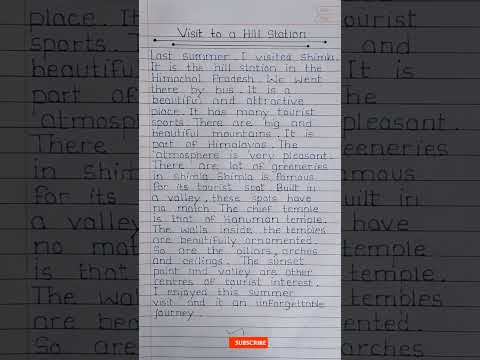 Visit to a Hill Station
Last summer. I visited Shimla.
It is the hill station in the
Himachal Pradesh. We went
there by bus. It is a
beautiful and attractive
place. It has many tourist
sports. There are big and
beautiful mountains. It is
part of Himalayas. The
atmosphere is very pleasant.
There are lot of greeneries
in Shimla. Shimla is famous
for its tourist spot. Built in
a valley, these spots have
no match. The chief temple
is that of Hanuman temple.
The walls inside the temples
are beautifully ornamented.
So are the pillars, arches
and ceilings. The sunset
point and valley are other
centres of tourist interest.
I enjoyed this summer
visit and it an unforgettable
journey.
SUBSCRIBE